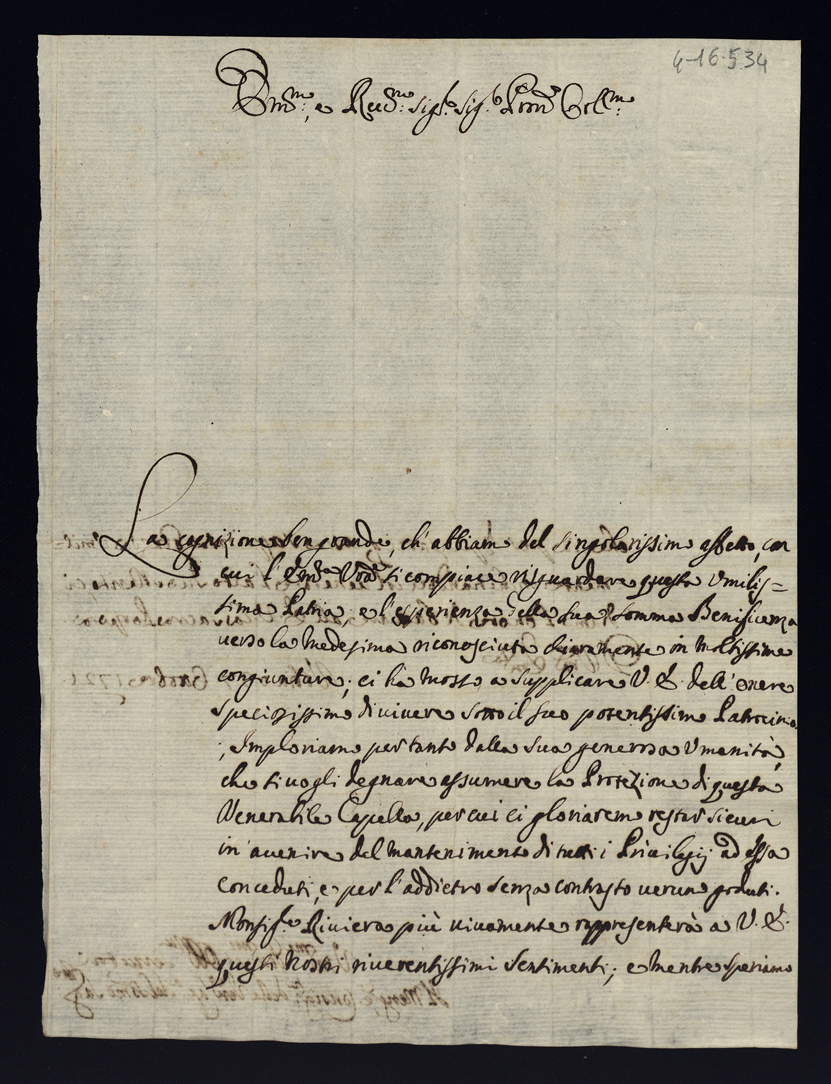 4-16.534
Emo:, e Revmo: Sigr. Sigr. Pron Collmo:
La cognizione ben grande, ch'abbiamo del singolarissimo affetto, con
cui l'Emza Vra si compiace risguardare questa Umilis=
sima Patria, e l'esperienza della sua somma Beneficenza
verso la medesima riconosciuta chiaramente in moltissime
congiunture, ci hà mosso a supplicare V. E. dell'onore
speciosissimo di vivere sotto il suo potentissimo Patrocinio
; Imploriamo per tanto dalla sua generosa Umanità,
che si vogli degnare assumere la Protezione di questa
Venerabile Capella, per cui ci gloriaremo restar sicuri
in avenire del mantenimento di tutti i Privilegij ad essa
conceduti, e per l'addietro senza contrasto veruno goduti.
Monsigre Riviera più vivamente rappresenterà a V. E.
questi nostri riverentissimi sentimenti; e mentre speriamo